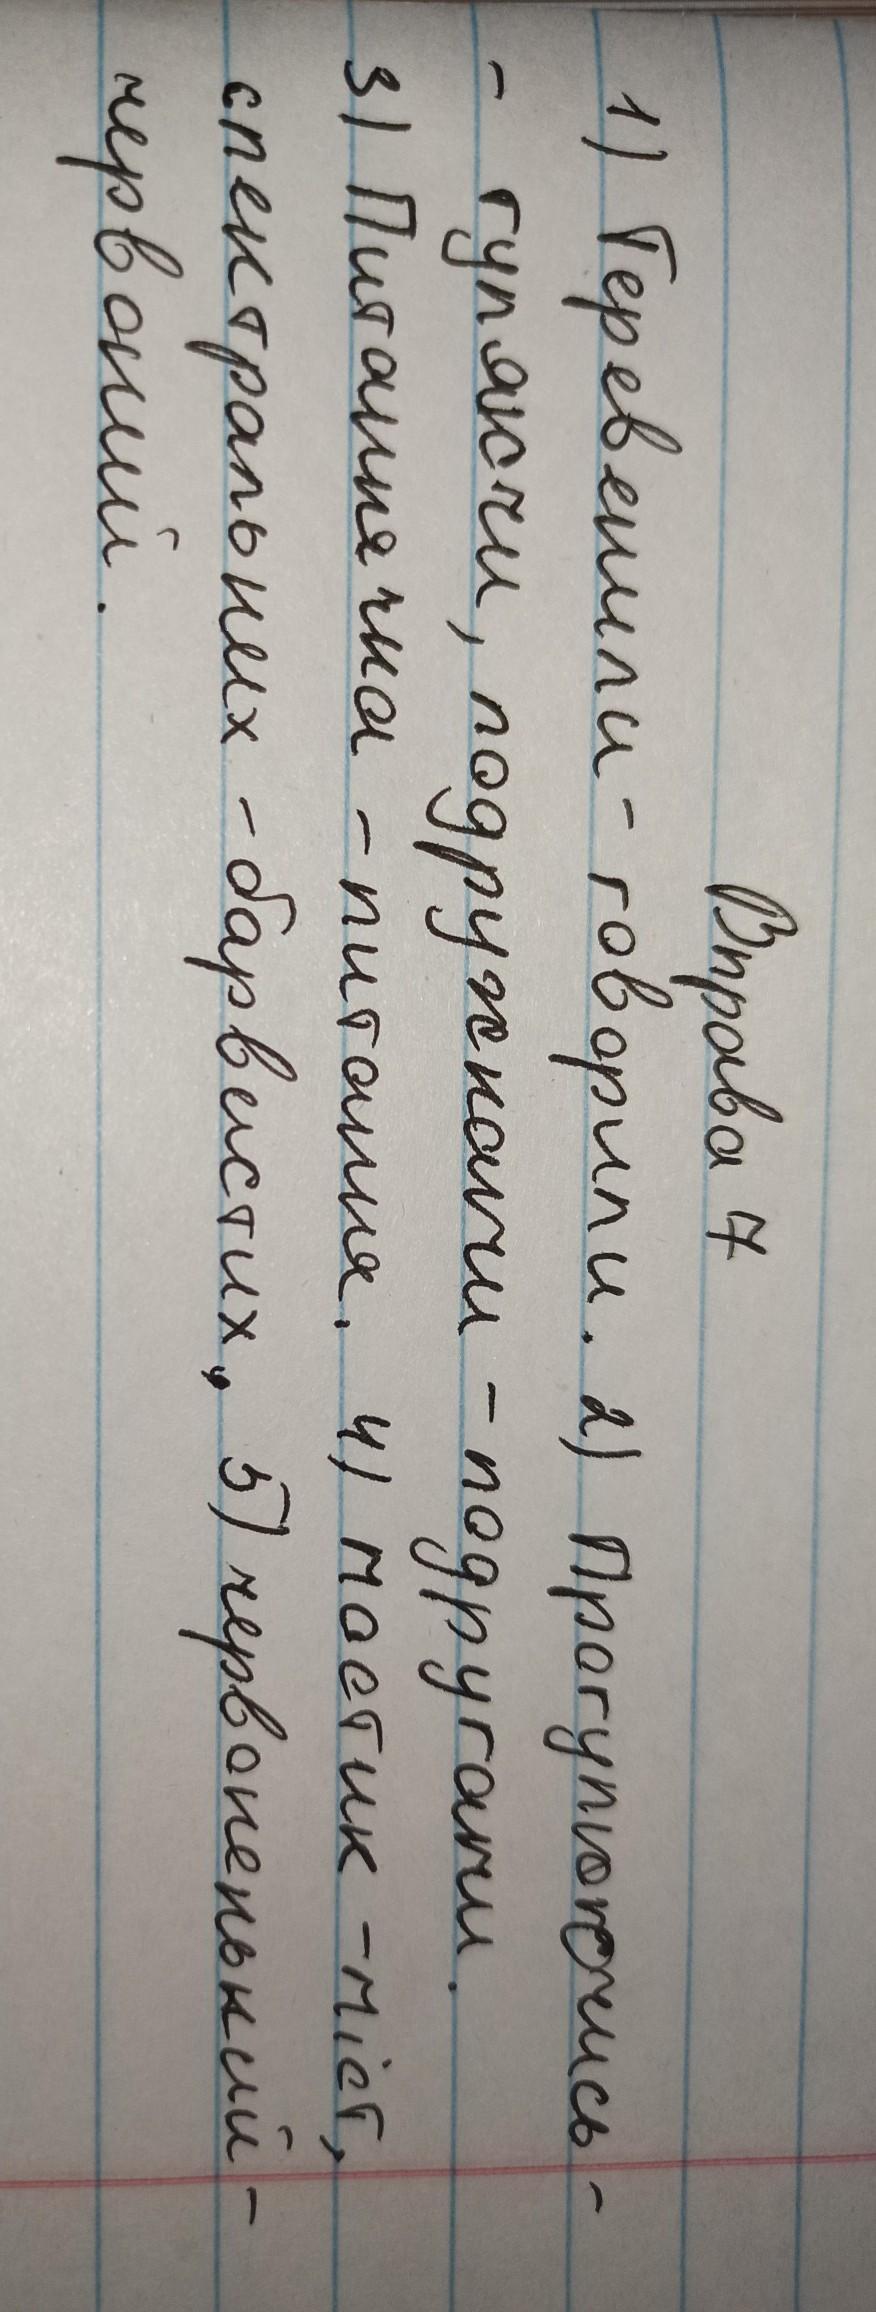 Вправа 7
1) Теревенили - говорили. 2) Прогулюючись -
- гуляючи, подружками - подругами.
3) Питаннячка - питання. 4) мостик - міст,
спектральних - барвистих, 5) червоненький -
червоний.